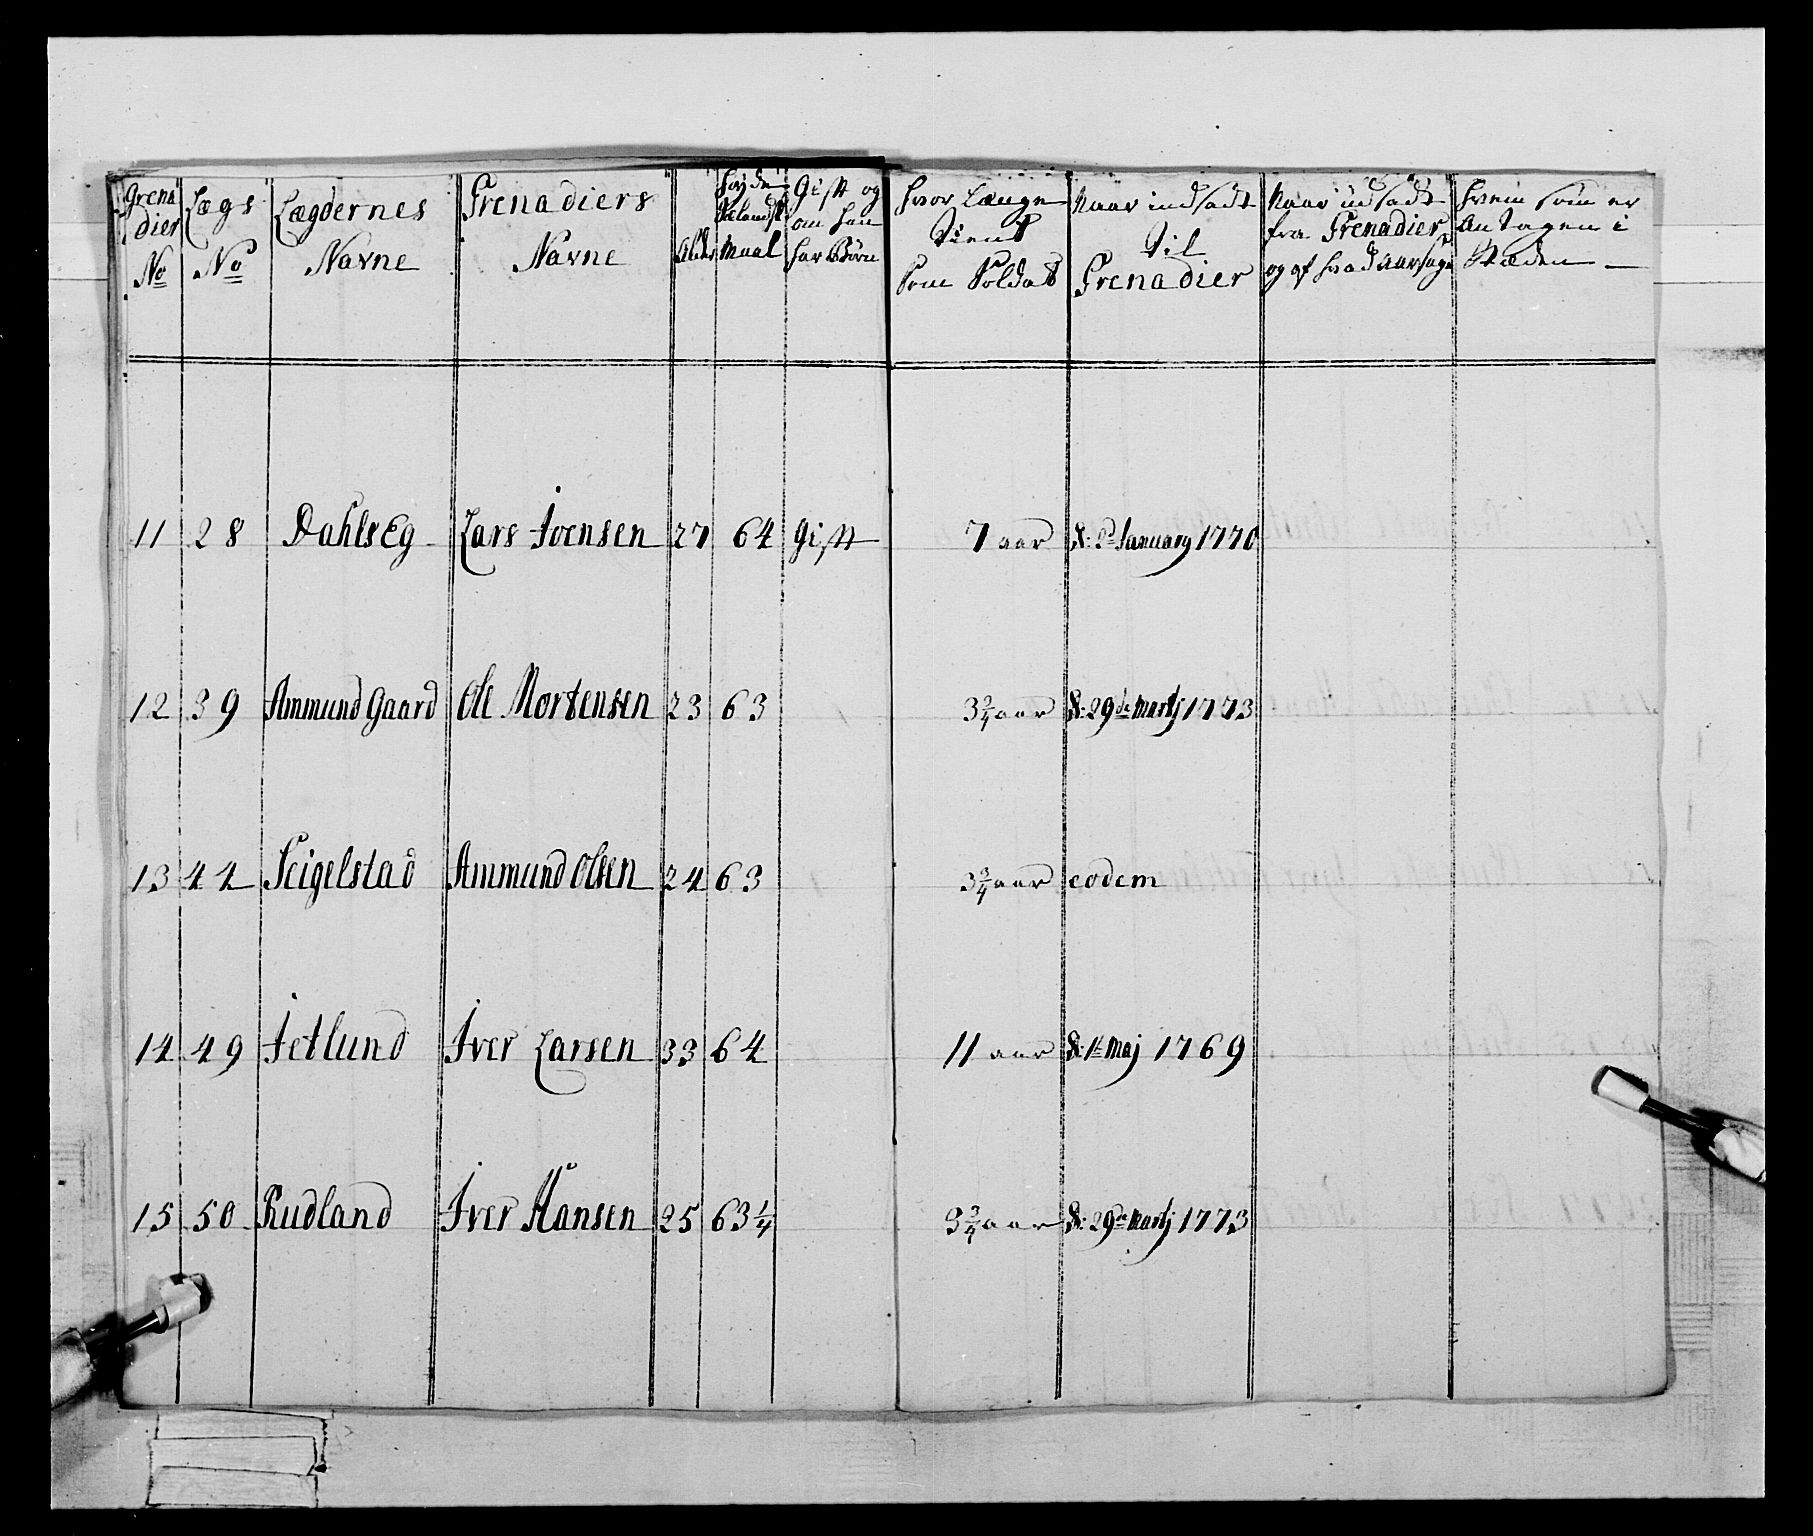 Grenadier No | Lægs No | Lægdernes Navne | Grenadiers Navne | Alder | Høyde Selandsk Maal | Gift og om han har Børn | Hvor Længe tient Som Soldat | Naar indsadt til Grenadier | Naar udsadt fra Grenadier og af hvad aarsage | Hvem som er antagen i Stæden
11 | 28 | Dahlseg | Lars Ivensen | 27 | 64 | Gift | 7 aar | D: January 1770
12 | 39 | Ammund Gaard | Ole Mortensen | 23 | 63 | 3 3/4 aar | D: 29de Martj 1773
13 | 44 | Seigelstad | Ammund Olsen | 24 | 63 | 3 3/4 aar | eodem
14 | 49 | Jetlund | Iver Larsen | 33 | 64 | 11 aar | D: 1te Maj 1769
15 | 50 | Rudland | Iver Hansen | 25 | 63 1/4 | 3 3/4 aar | D: 29de Martj 1773